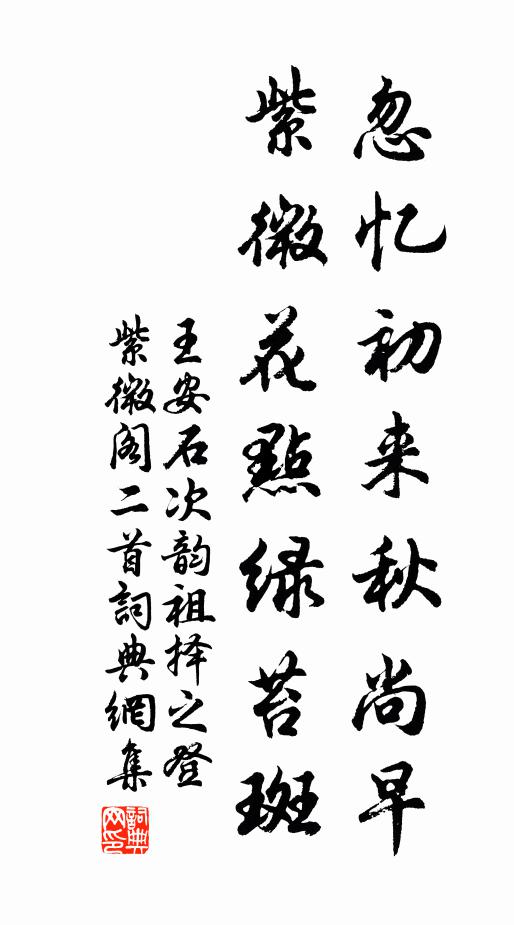 忽忆初来秋尚早
紫微花點绿苔斑
王安石次韵祖择之登
紫微阁二首詞典網集
詞典
网印